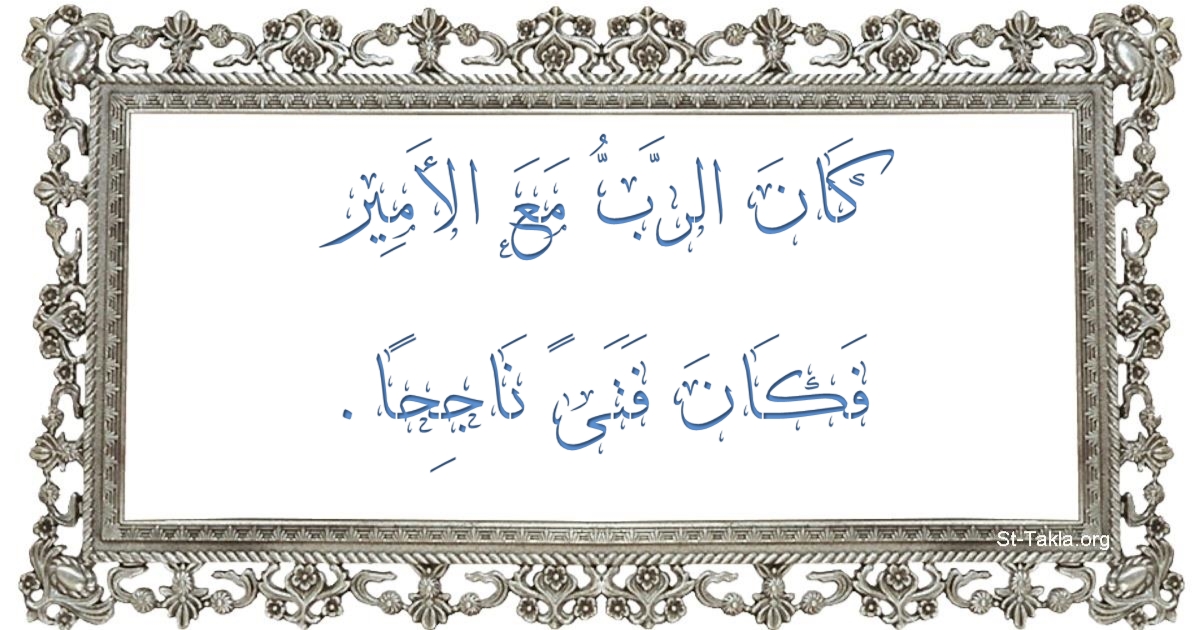 كَانَ الرَّبُّ مَعَ الأَمِير
فَكَانَ فَتَىً نَاجِحًا .
St-Takla.org